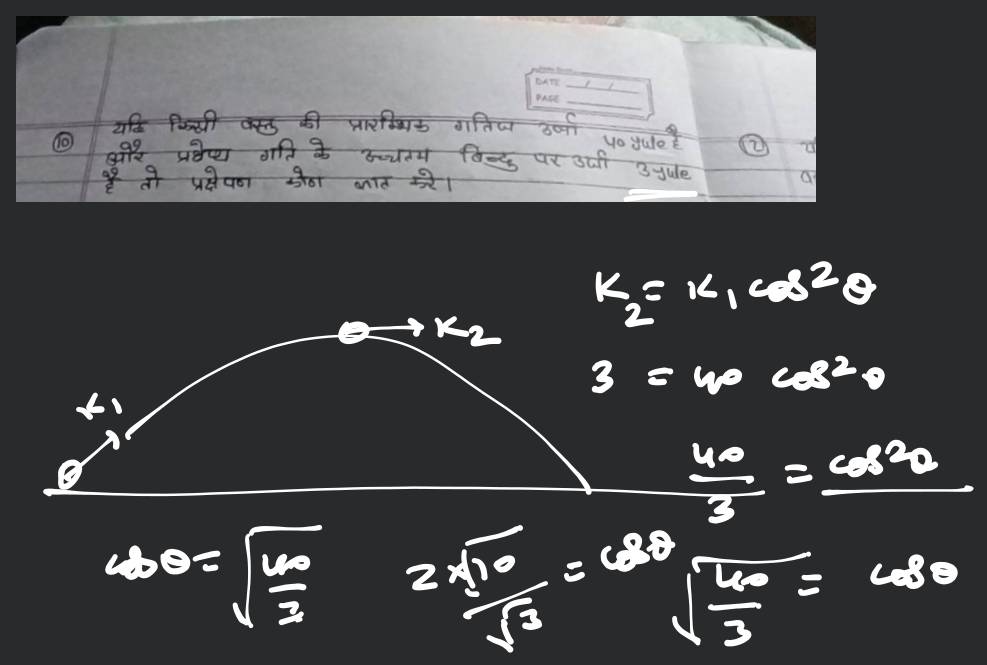 DATE
PAGE
(10) यदि किसी वस्तु की प्रारम्भिक गतिज उर्जा 40 yule है
और प्रक्षेप्य गति के उच्चतम बिन्दु पर उर्जा 3 yule
है तो प्रक्षेपण कोण ज्ञात करे।
K₂ = K₁ cos²θ
K₂
3 = 40 cos²θ
K₁
40/3 = cos²θ
cosθ = √(40/3)
2×√10/√3 = cosθ
√(40/3) = cosθ